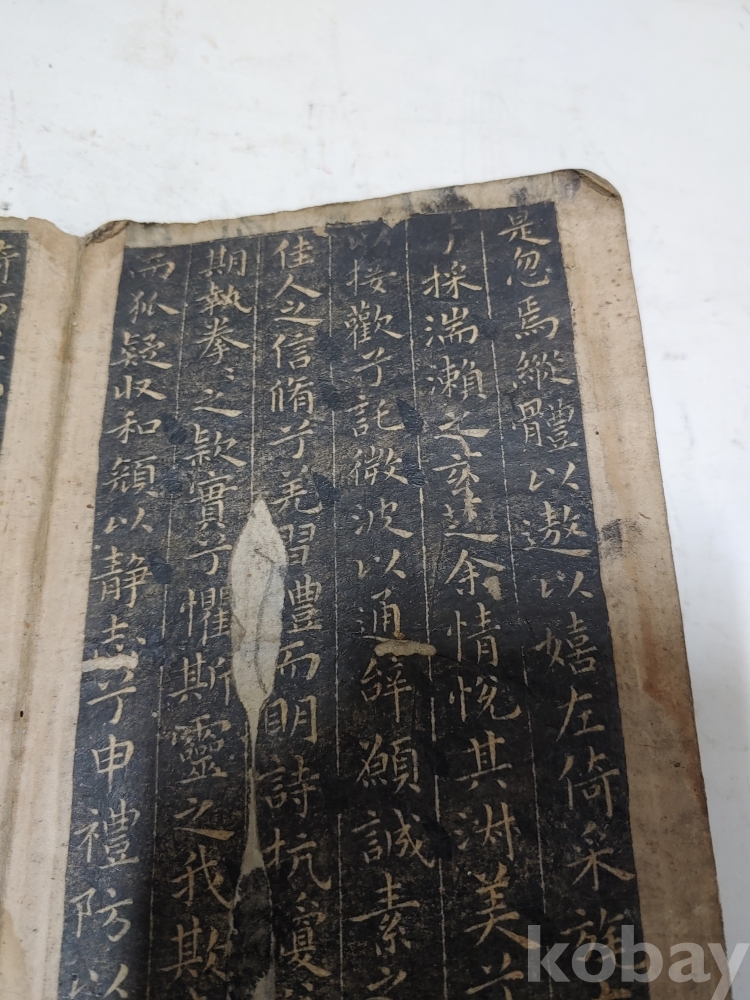 是忽焉縱體以遨以嬉左倚采旄
兮採湍瀨之玄芝余情悅其淑美兮
以接歡兮託微波以通辭願誠素之
佳人之信脩兮羌習禮而明詩抗瓊
期執拳〻之款實兮懼斯靈之我欺
而狐疑收和顏以靜志兮申禮防以
kobay